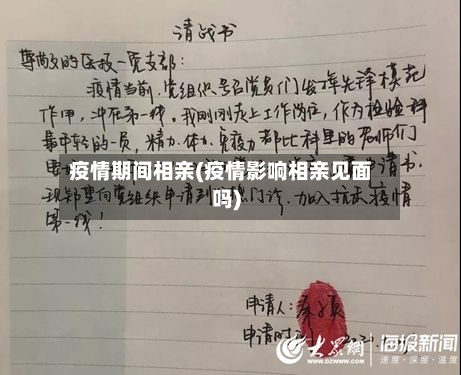 请战书
尊敬的医技一党支部：
疫情当前，党组织号召党员们发挥先锋模范
作用，冲在第一线。我刚刚走上工作岗位，作为检验科
最年轻的一员，精力、体力、免疫力都比科里的老师们
疫情期间相亲(疫情影响相亲见面
吗)
请书，
现郑重向党组织申请到 热门诊，加入抗击疫情
第一线！
申请人：
申请时
大众网 海报新闻
www.dzwww.com 速度·深度·温度